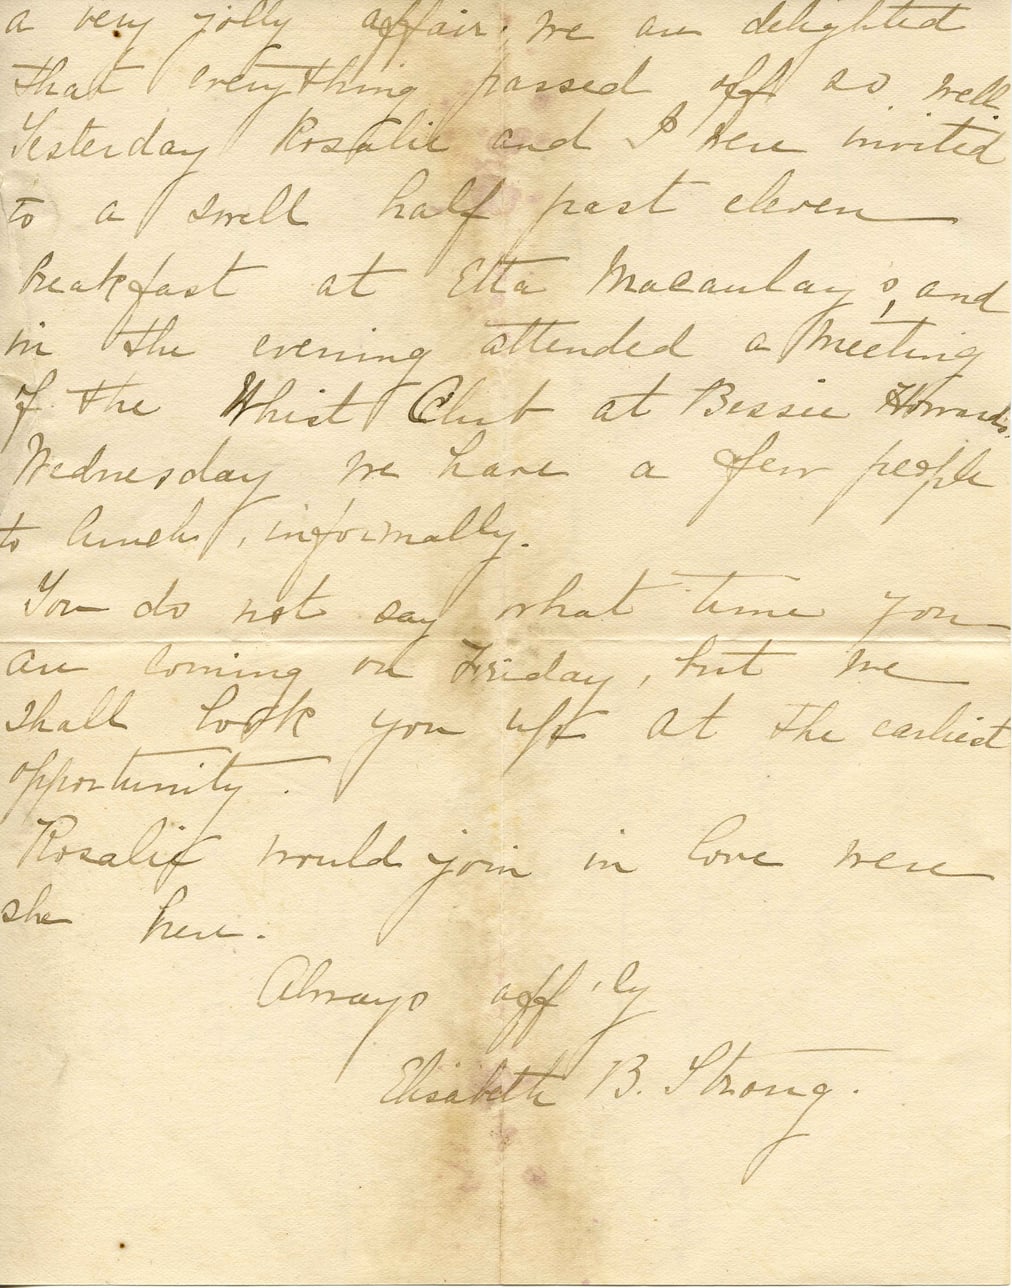 a very jolly affair. We are delighted
that everything passed off so well
Yesterday Rosalie and I were invited
to a swell half past eleven
Breakfast at Etta Macaulay's, and
in the evening attended a meeting
of the Whist Club at Bessie Howards.
Wednesday we have a few people
to lunch, informally.
You do not say what time you
are coming on Friday, but we
shall look you up at the earliest
opportunity.
Rosalie would join in love were
she here.
Always aff'ly
Elisabeth B. Strong.